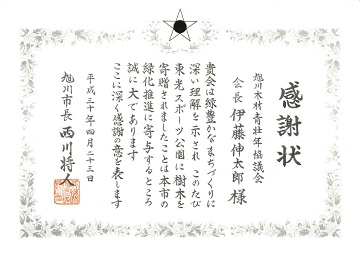 感謝状
旭川木材青壮年協議会
会長 伊藤伸太郎 様
貴会は緑豊かなまちづくりに
深い理解を示され このたび
東光スポーツ公園に樹木を
寄贈されましたことは本市の
緑化推進に寄与するところ
誠に大であります
ここに深く感謝の意を表します
平成三十年四月二十三日
旭川市長 西川将人